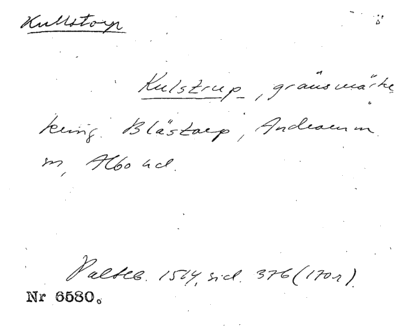 Kullstorp
Kulstrup, gränsmärke
kring Blästorp, Andrarum
sn, Albo hd.
Paltsb. 1514, sid. 376 (170r).
Nr 6580.